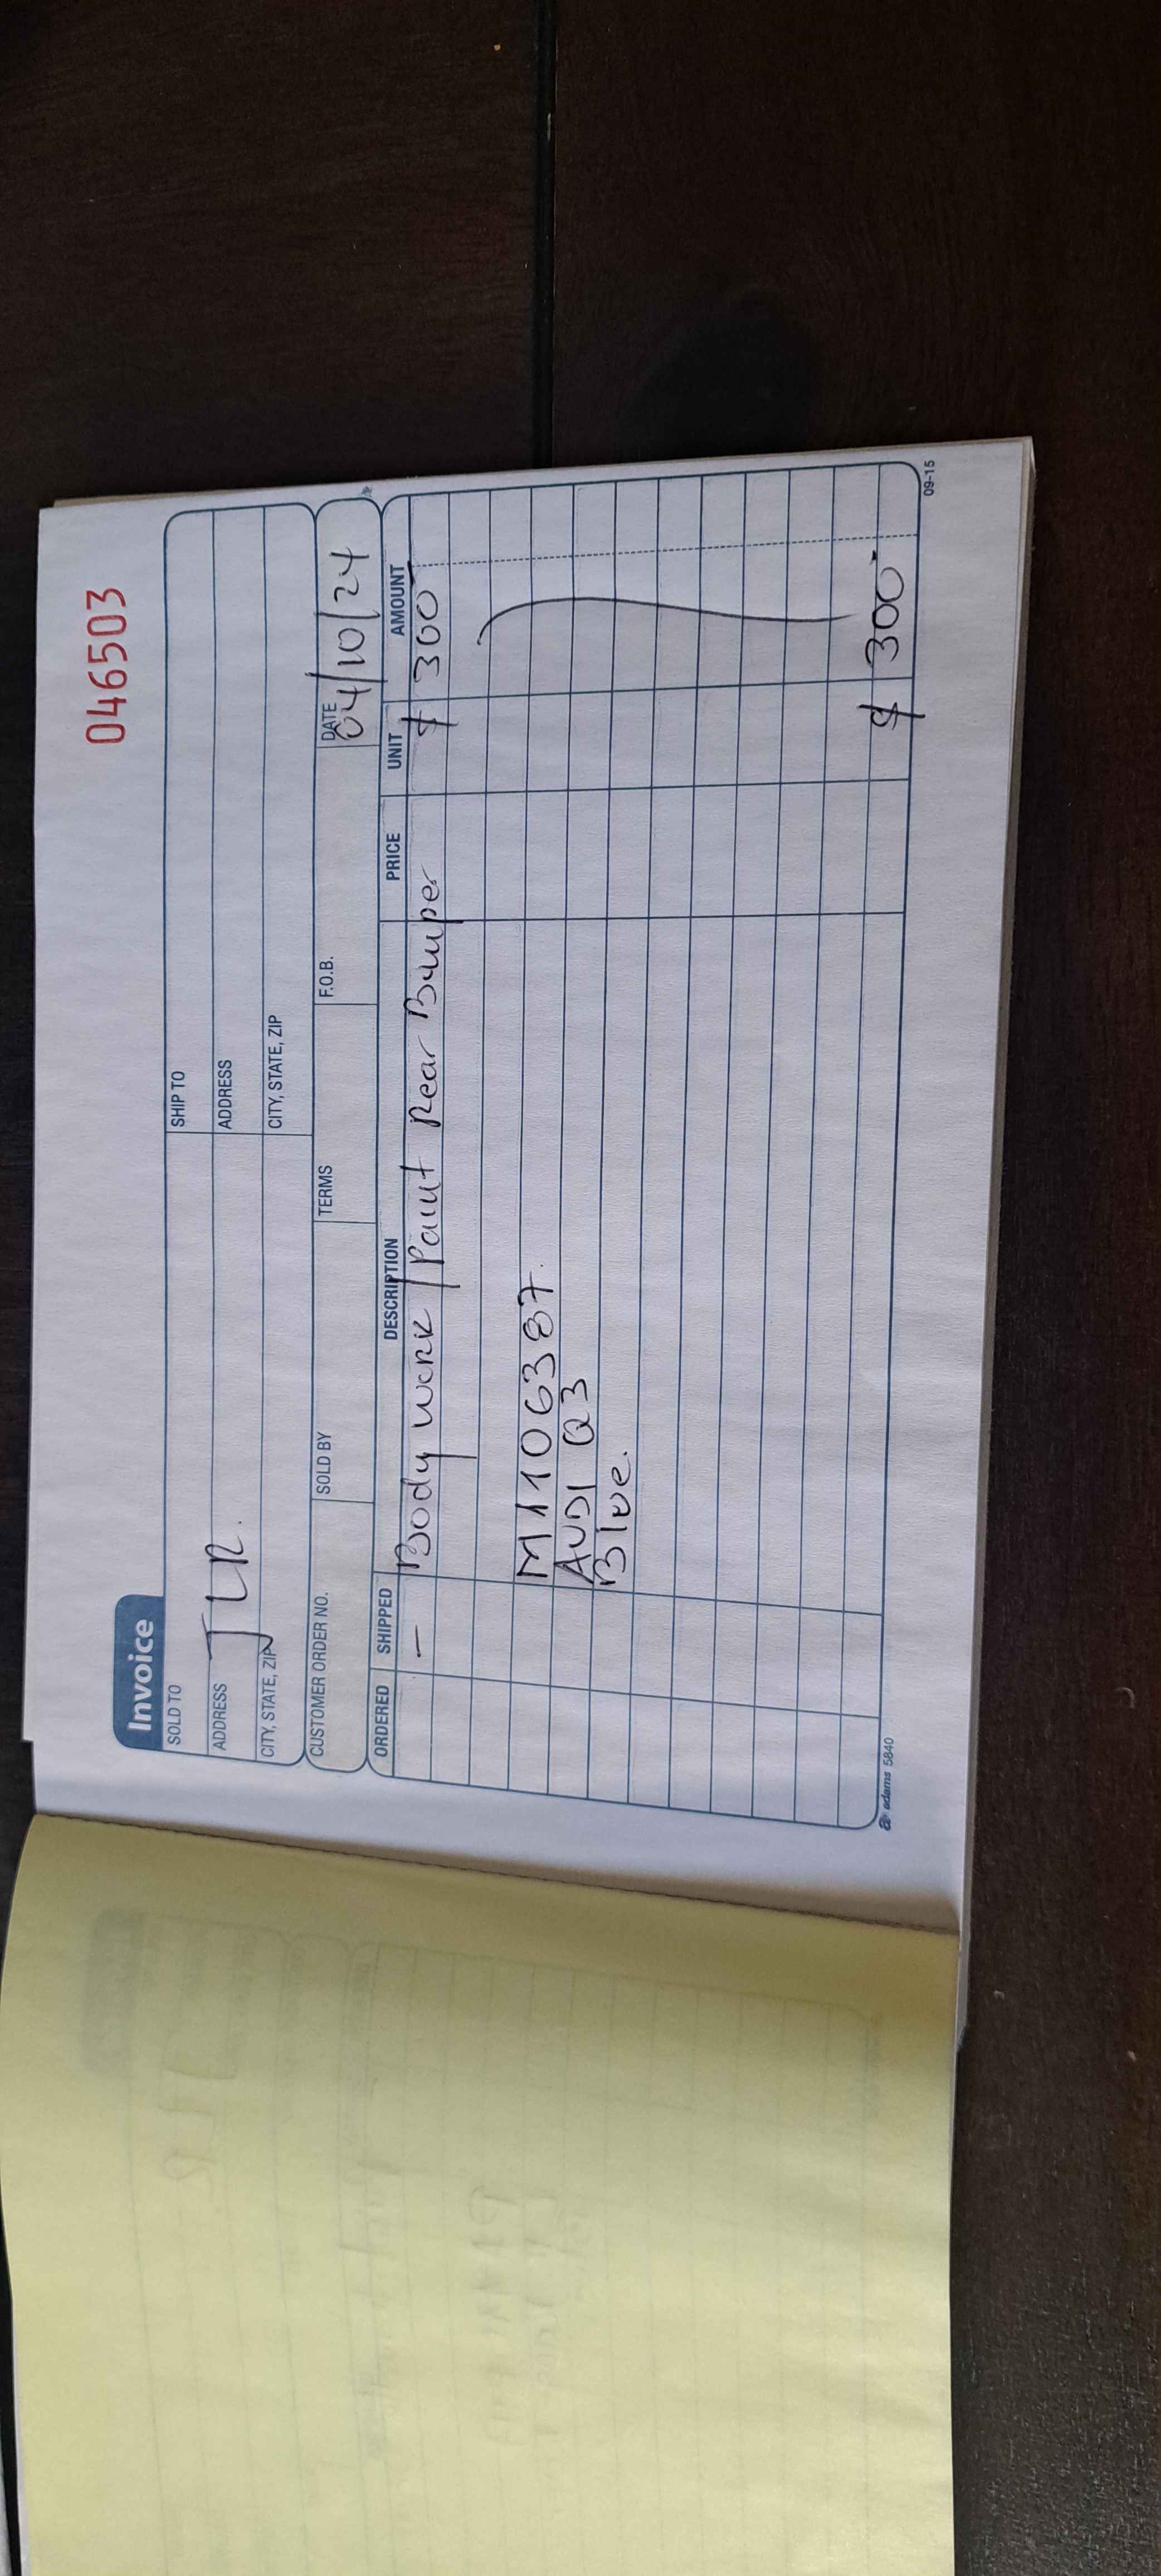 046503
Invoice
SOLD TO SHIP TO
JLR.
ADDRESS ADDRESS
CITY, STATE, ZIP CITY, STATE, ZIP
CUSTOMER ORDER NO. SOLD BY TERMS F.O.B. DATE
04/10/24
ORDERED SHIPPED DESCRIPTION PRICE UNIT AMOUNT
— Body work / Paint Rear Bumper $ 300
M1106387.
AUDI Q3
Blue.
$ 300
adams 5840 09-15